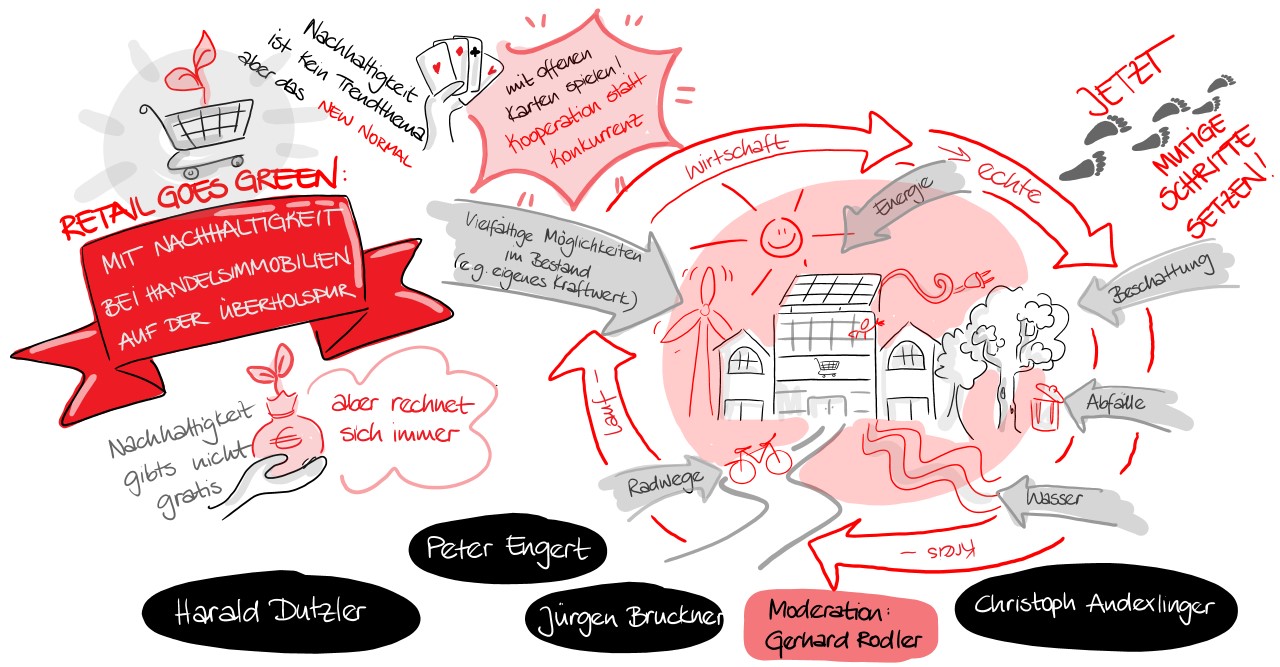 RETAIL GOES GREEN:
MIT NACHHALTIGKEIT
BEI HANDELSIMMOBILIEN
AUF DER ÜBERHOLSPUR
Nachhaltigkeit
ist kein Trendthema
aber das NEW NORMAL
mit offenen
Karten spielen!
Kooperation statt
Konkurrenz
Nachhaltigkeit
gibts nicht
gratis
aber rechnet
sich immer
Vielfältige Möglichkeiten
im Bestand
(e.g. eigenes Kraftwerk)
→ echte
Kreis -
lauf -
wirtschaft
Energie
Beschattung
Abfälle
Wasser
Radwege
JETZT
MUTIGE
SCHRITTE
SETZEN!
Peter Engert
Harald Dutzler
Jürgen Bruckner
Moderation:
Gerhard Rodler
Christoph Andexlinger